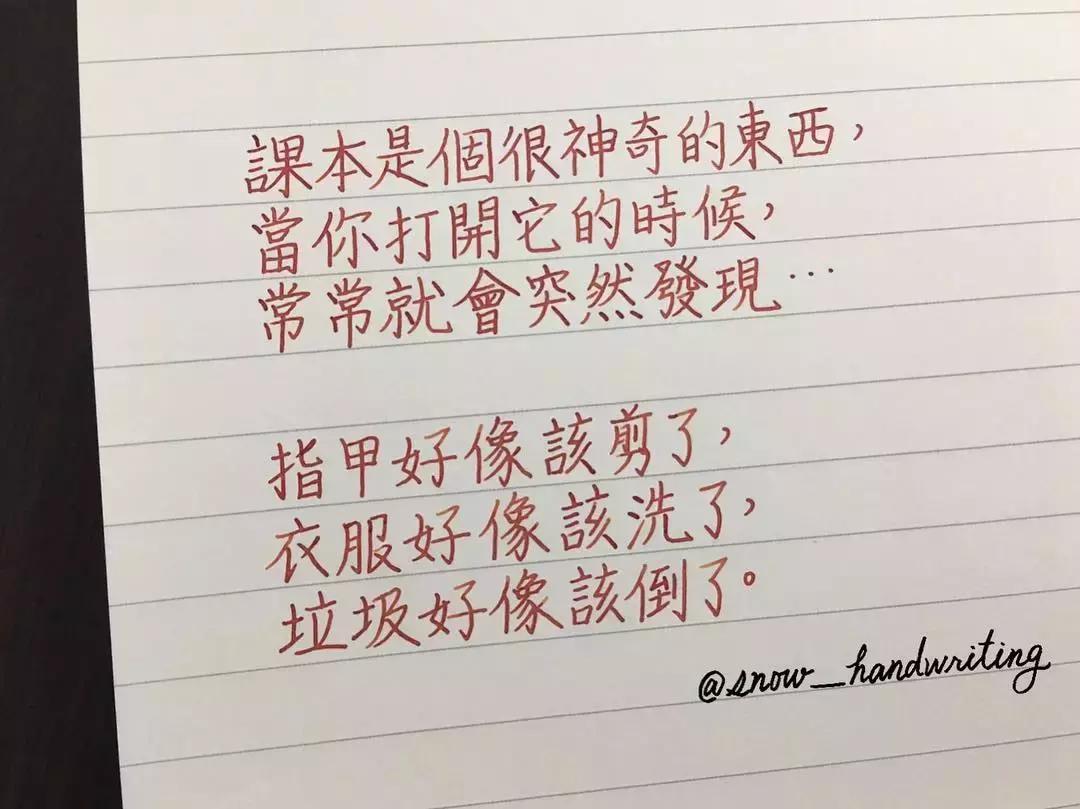 課本是個很神奇的東西，
當你打開它的時候，
常常就會突然發現…
指甲好像該剪了，
衣服好像該洗了，
垃圾好像該倒了。
@snow_handwriting